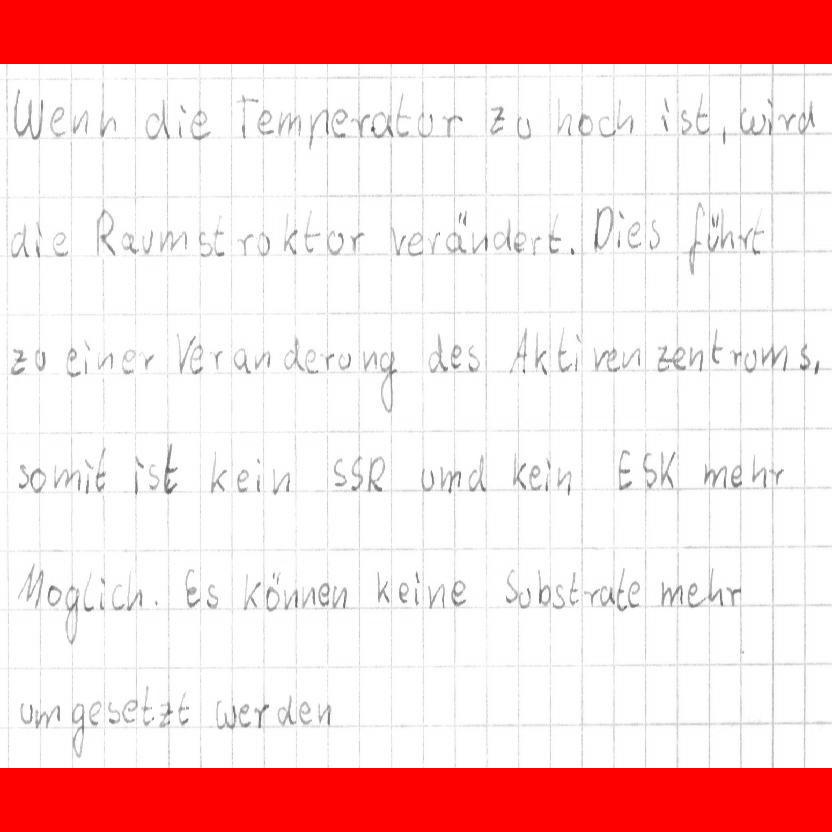 Wenn die Temperatur zu hoch ist, wird
die Raumstruktur verändert. Dies führt
zu einer Veranderung des Aktiven zentrums,
somit ist kein SSR und kein ESK mehr
Moglich. Es können keine Substrate mehr
umgesetzt werden